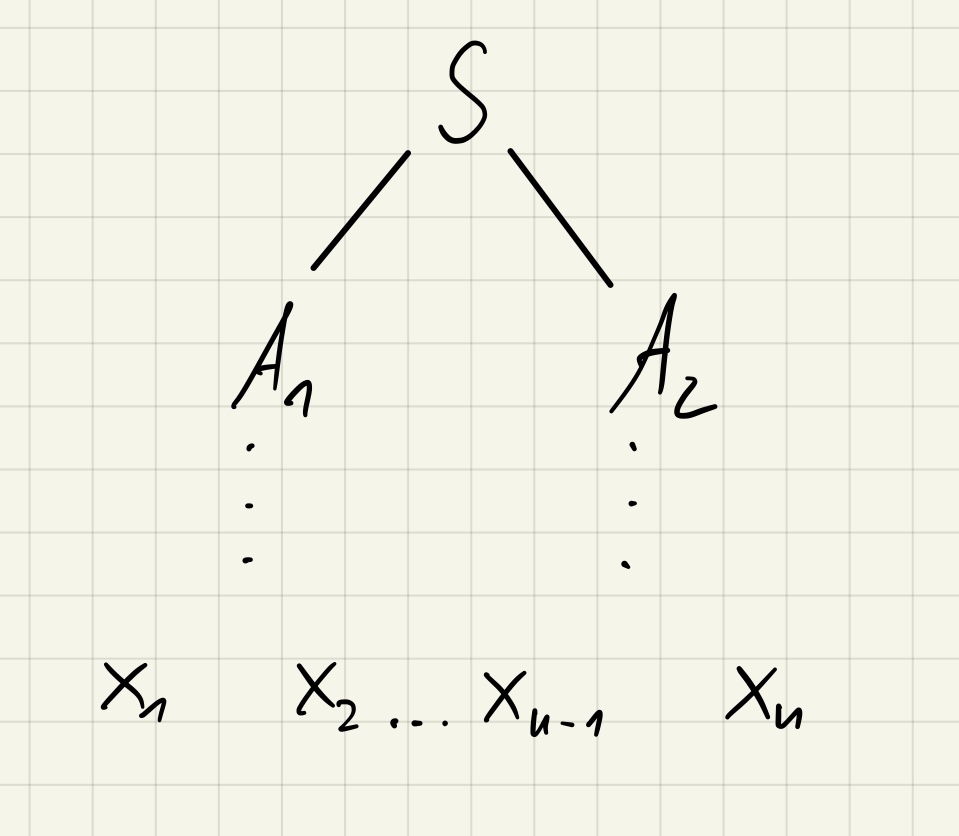 S
A₁ A₂
X₁ X₂ .... Xₙ₋₁ Xₙ